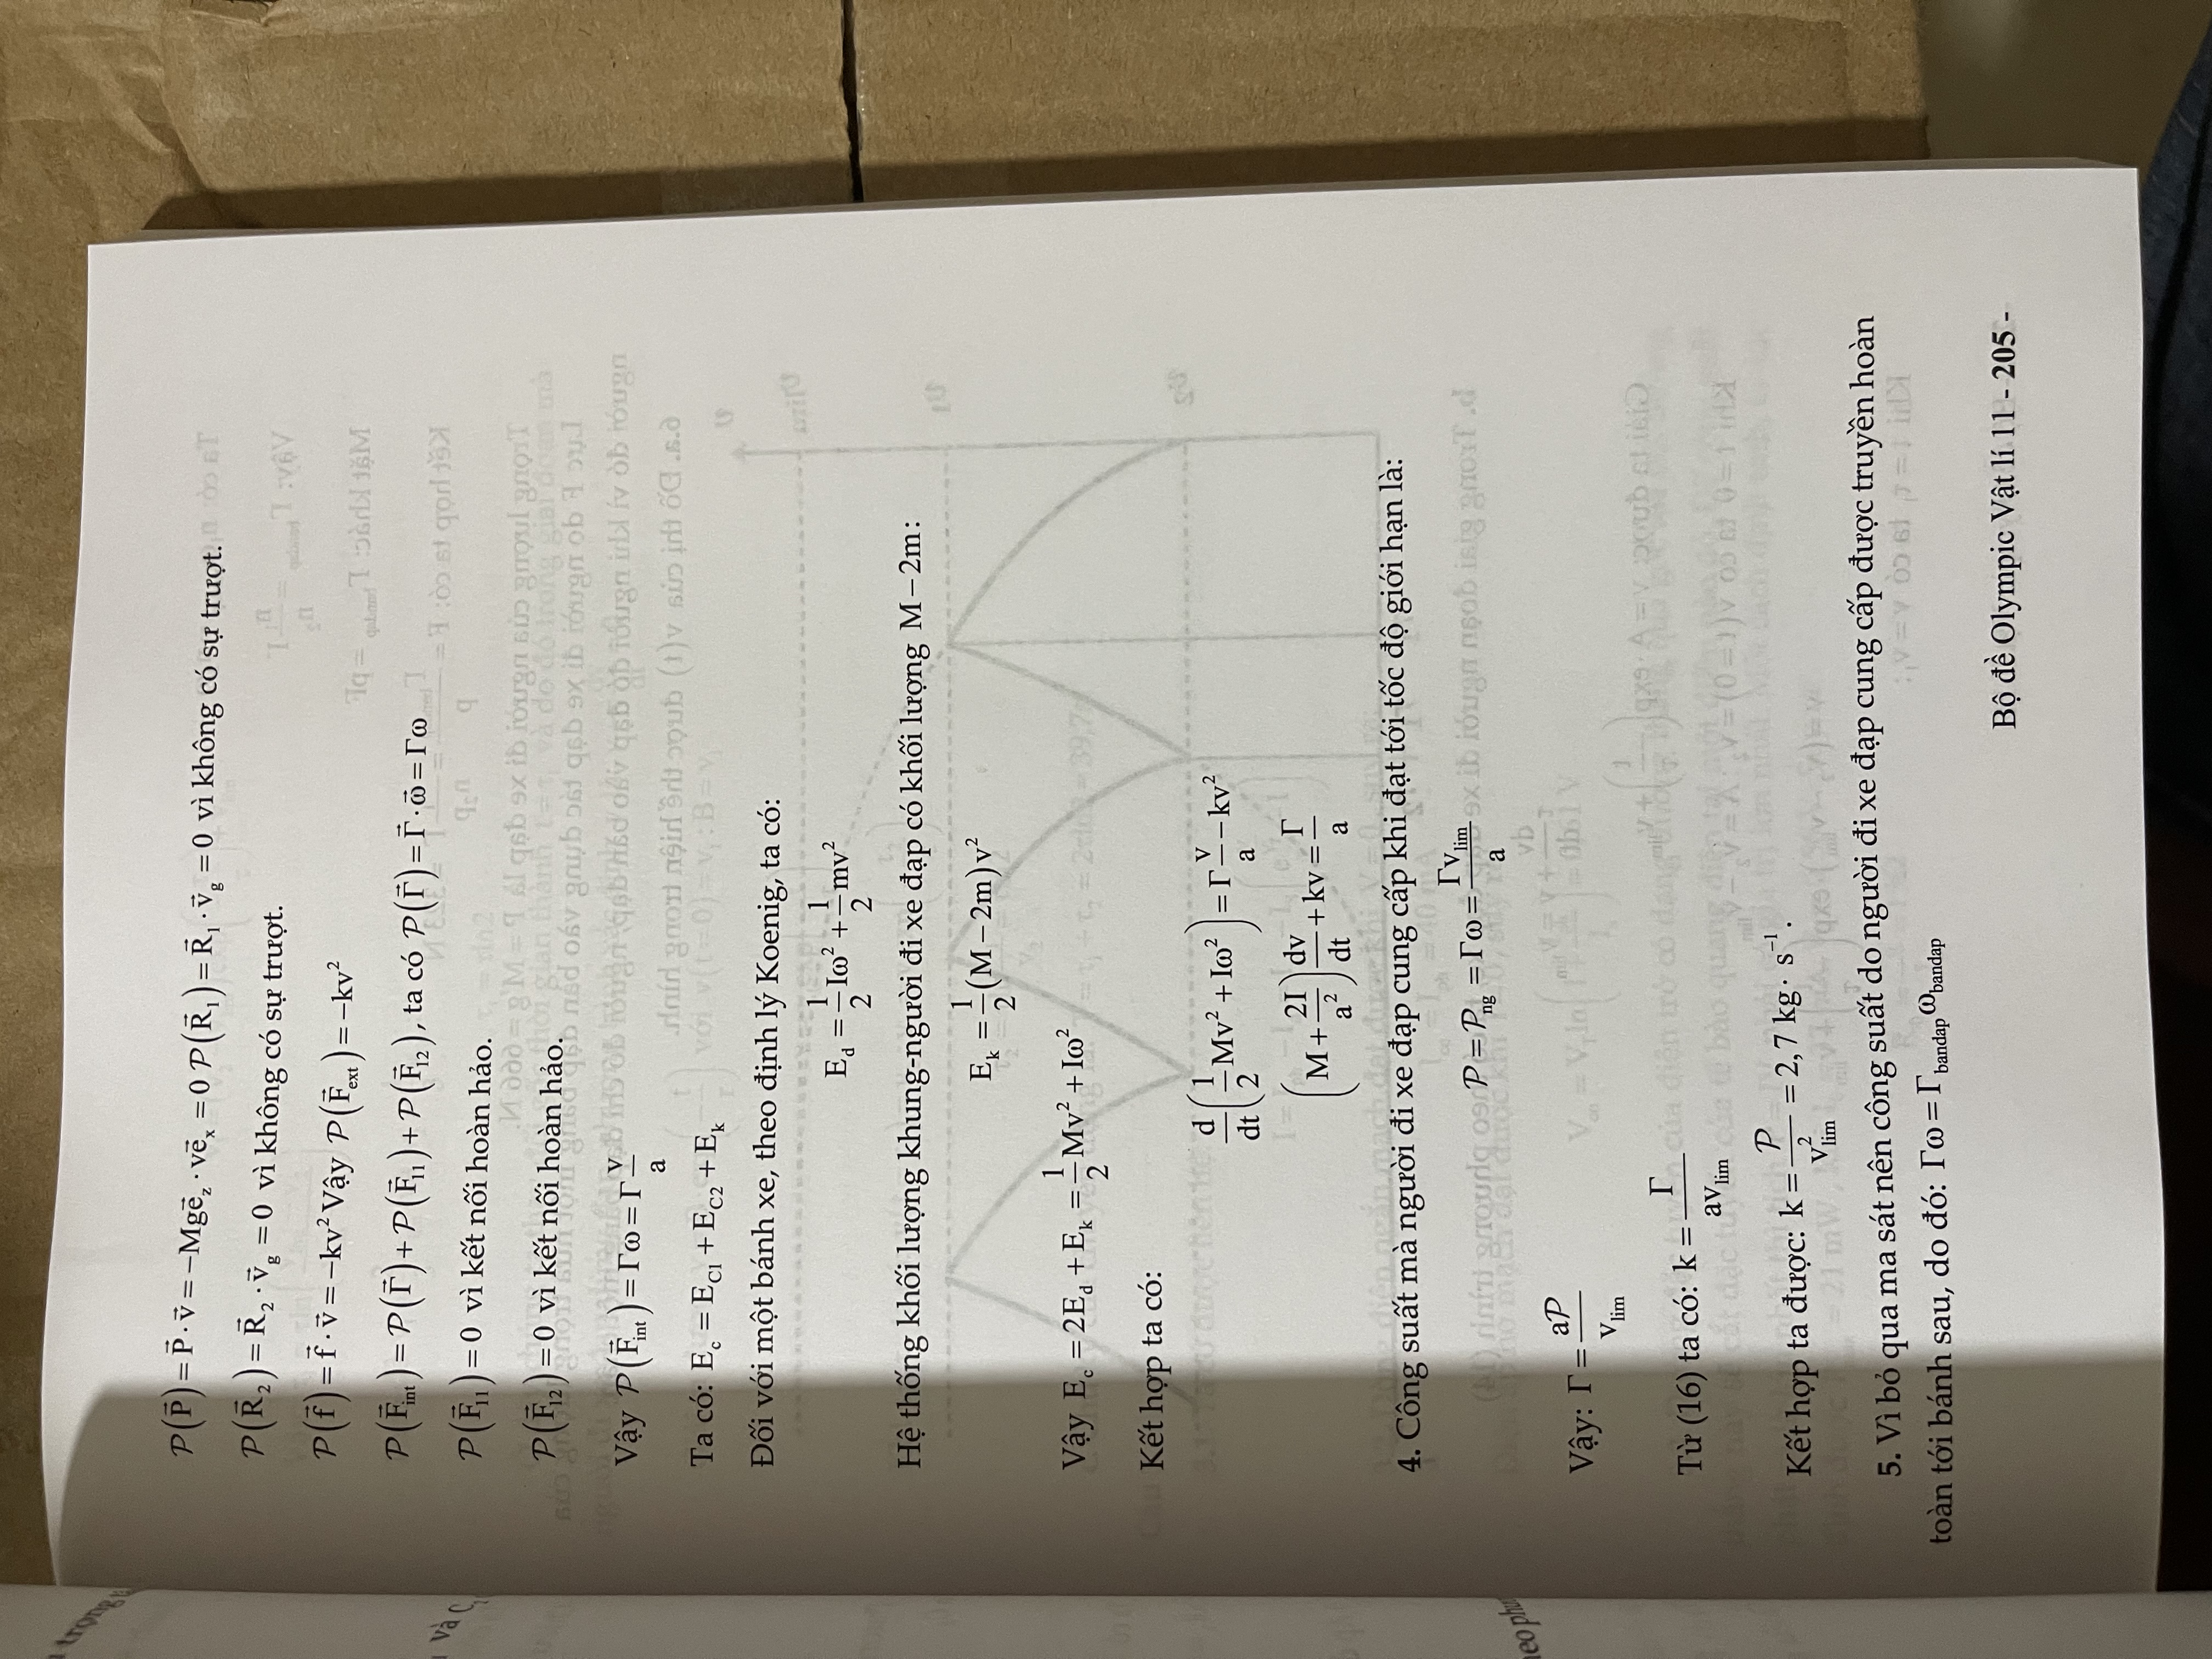 𝒫(P⃗) = P⃗·v⃗ = −Mge⃗_z·ve⃗_x = 0 𝒫(R⃗₁) = R⃗₁·v⃗_g = 0 vì không có sự trượt.
𝒫(R⃗₂) = R⃗₂·v⃗_g = 0 vì không có sự trượt.
𝒫(f⃗) = f⃗·v⃗ = −kv² Vậy 𝒫(F⃗_ext) = −kv²
𝒫(F⃗_int) = 𝒫(Γ⃗) + 𝒫(F⃗_I1) + 𝒫(F⃗_I2), ta có 𝒫(Γ⃗) = Γ⃗·ω⃗ = Γω
𝒫(F⃗_I1) = 0 vì kết nối hoàn hảo.
𝒫(F⃗_I2) = 0 vì kết nối hoàn hảo.
Vậy 𝒫(F⃗_int) = Γω = Γ v/a
Ta có: E_c = E_C1 + E_C2 + E_k
Đối với một bánh xe, theo định lý Koenig, ta có:
E_d = 1/2 Iω² + 1/2 mv²
Hệ thống khối lượng khung-người đi xe đạp có khối lượng M − 2m :
E_k = 1/2 (M − 2m)v²
Vậy E_c = 2E_d + E_k = 1/2 Mv² + Iω²
Kết hợp ta có:
d/dt (1/2 Mv² + Iω²) = Γ v/a − kv²
(M + 2I/a²) dv/dt + kv = Γ/a
4. Công suất mà người đi xe đạp cung cấp khi đạt tới tốc độ giới hạn là:
𝒫 = 𝒫_ng = Γω = Γv_lim/a
Vậy: Γ = a𝒫/v_lim
Từ (16) ta có: k = Γ/av_lim
Kết hợp ta được: k = 𝒫/v²_lim = 2,7 kg· s⁻¹ .
5. Vì bỏ qua ma sát nên công suất do người đi xe đạp cung cấp được truyền hoàn
toàn tới bánh sau, do đó: Γω = Γ_bandap ω_bandap
Bộ đề Olympic Vật lí 11 - 205 -